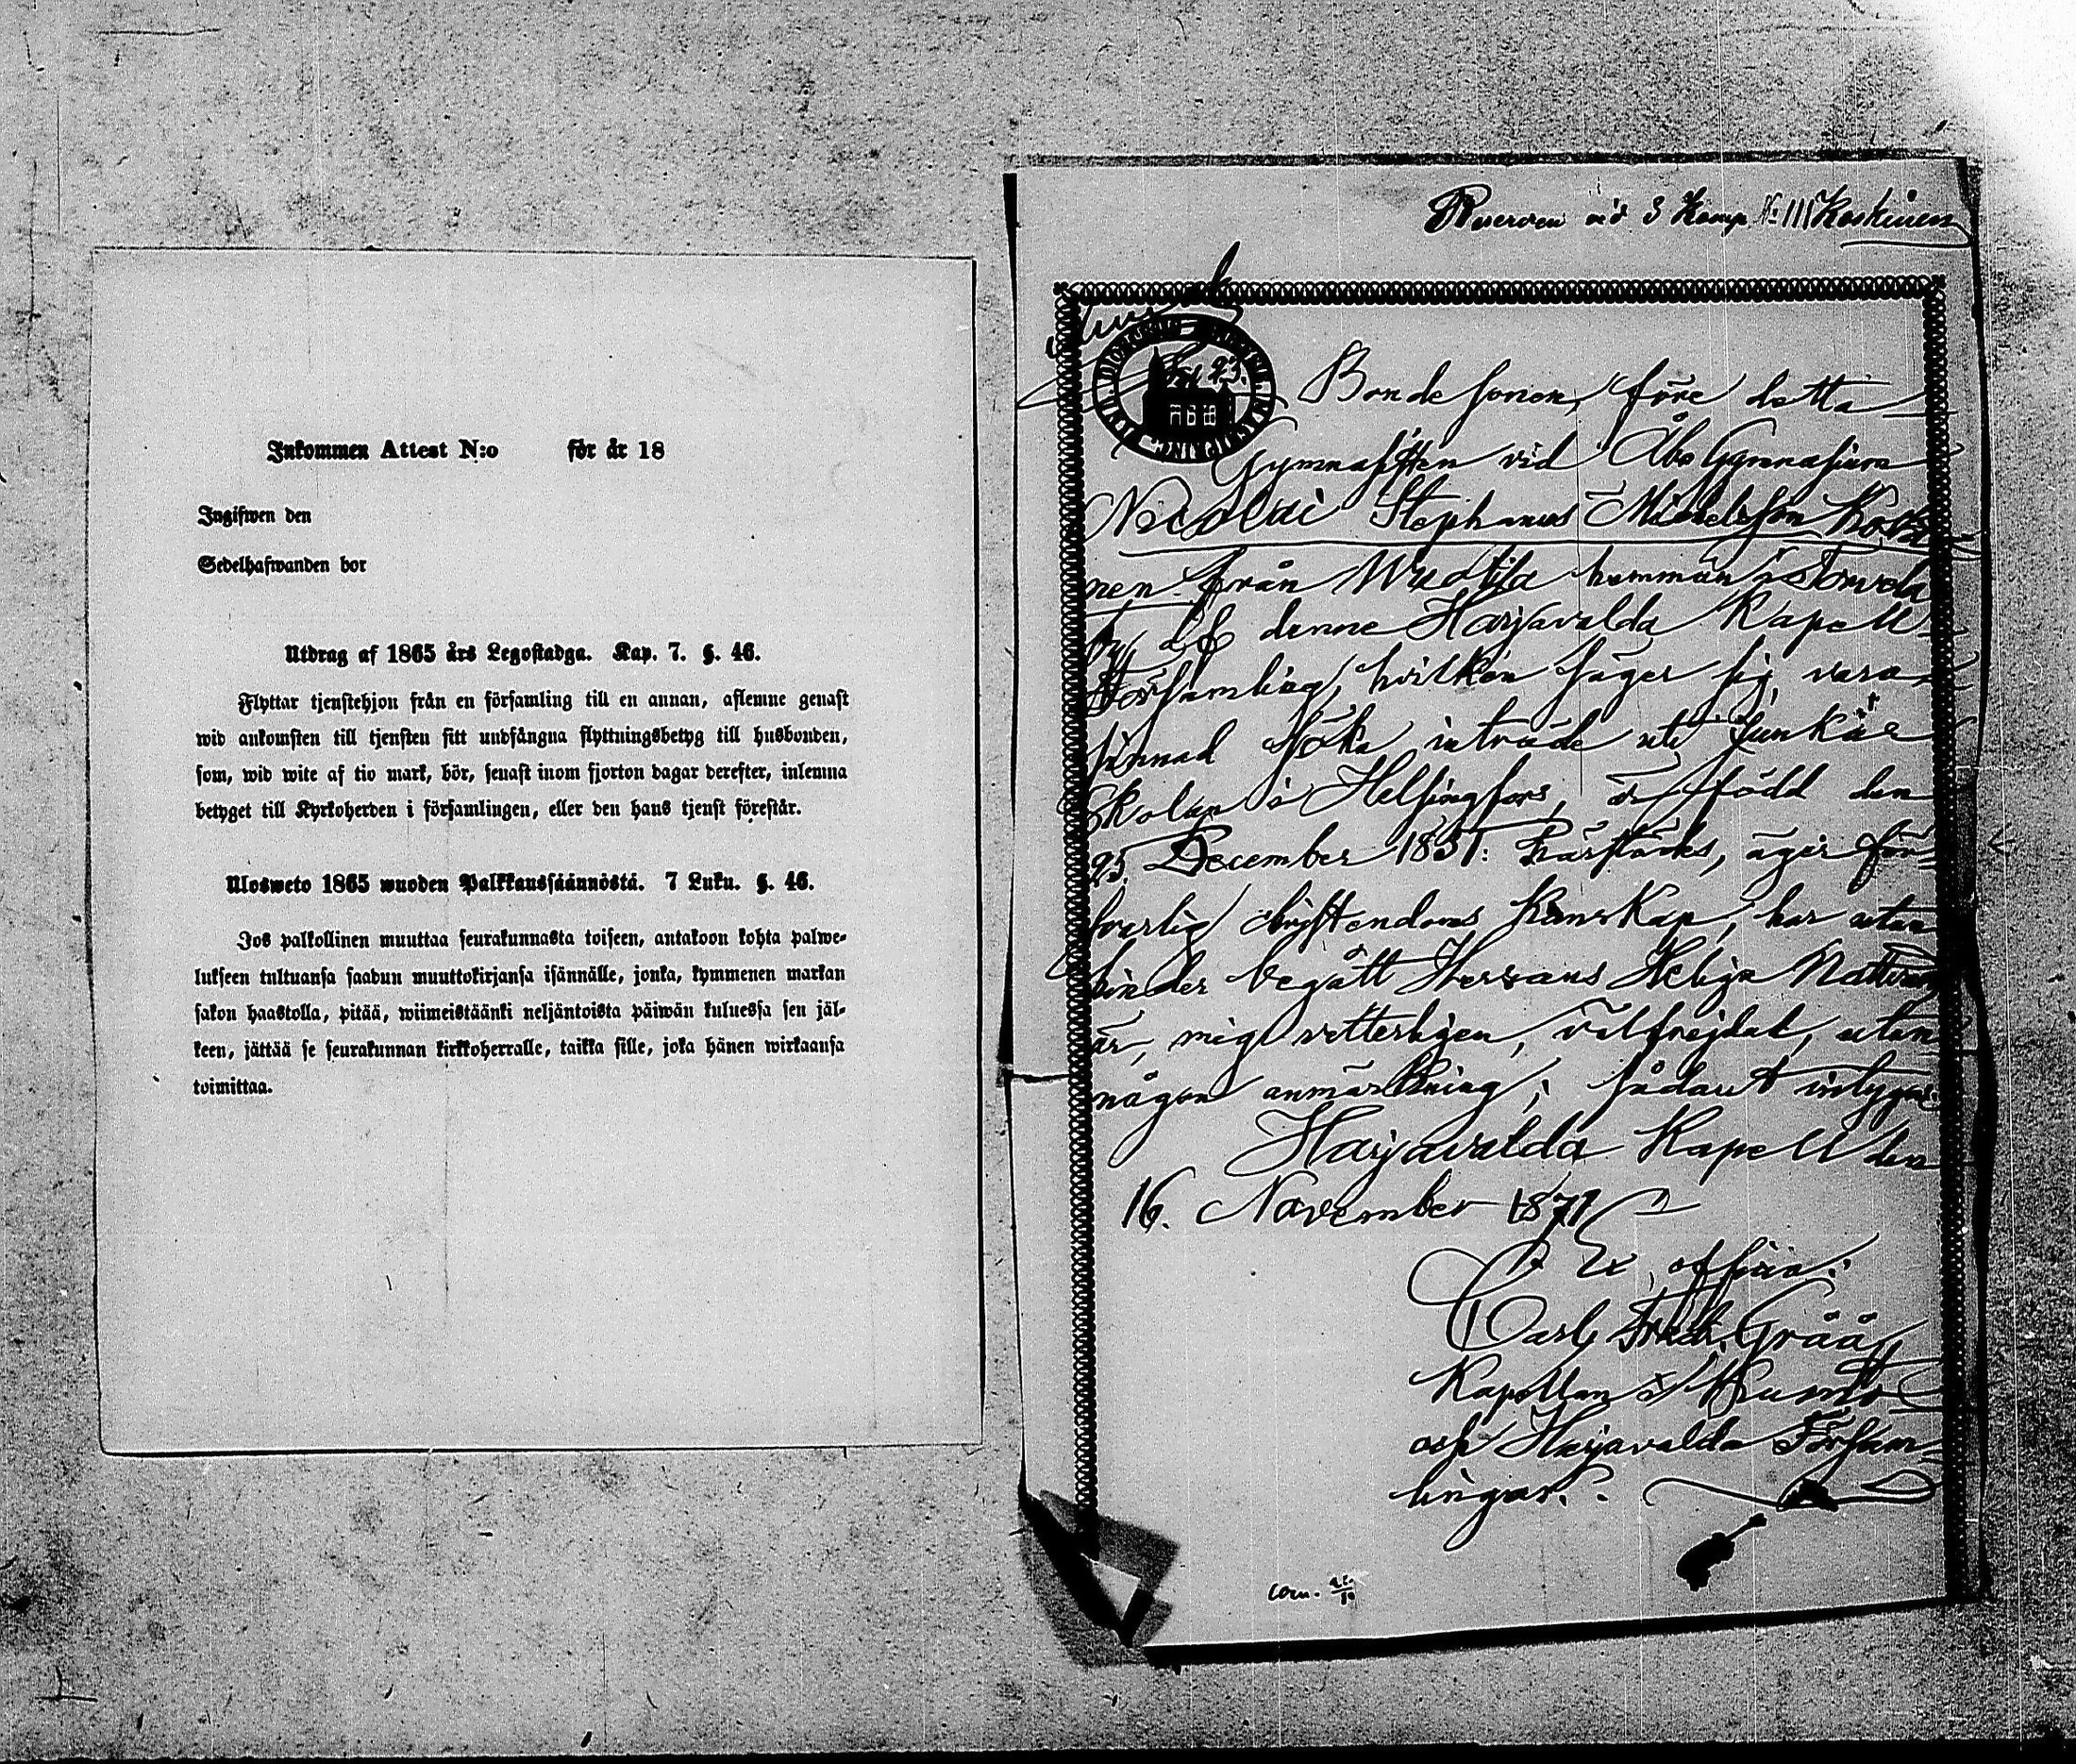 Inkommen Attest N:o för år 18
Ingifwen den
Sedelhafwanden bor
Utdrag af 1865 års Legostadga. Kap. 7. §. 46.
Flyttar tjenstehjon från en församling till en annan, aflemne genast
wid ankomsten till tjensten sitt undfångna flyttningsbetyg till husbonden,
som, wid wite af tio mark, bör, senast inom fjorton dagar derefter, inlemna
betyget till Kyrkoherden i församlingen, eller den hans tjenst förestår.
Ulosweto 1865 wuoden Palkkaussäännöstä. 7 Luku. §. 46.
Jos palkollinen muuttaa seurakunnasta toiseen, antakoon kohta palwe-
lukseen tultuansa saadun muuttokirjansa isännälle, jonka, kymmenen markan
sakon haastolla, pitää, wiimeistäänki neljäntoista päiwän kuluessa sen jäl-
keen, jättää se seurakunnan kirkkoherralle, taikka sille, joka hänen wirkaansa
toimittaa.
vid 3 Komp. No 111 Koskinen
Bondesonen, före detta
Gymnasisten vid Åbo Gymnasium
Nicolai Stephanus Michelsson Koski-
nen från hemman i Torvela
by af denne Harjavalda Kapell-
församling, hvilken säger sig vara
sinnad söka inträde uti Junkar
Skolan i Helsingfors, är född den
25 December 1851 härstädes, äger för-
svarlig christendoms kunskap, har utan
hinder begått Herrans Heliga Nattvard
är, mig vetterligen, välfrejdad, utan
någon anmärkning; sådant intygas.
Harjavalda Kapell den
16. November 1871
Ex officio:
Carl Fredr. Gråå
Kapellan i Kumo
och Harjavalda Försam-
lingar.